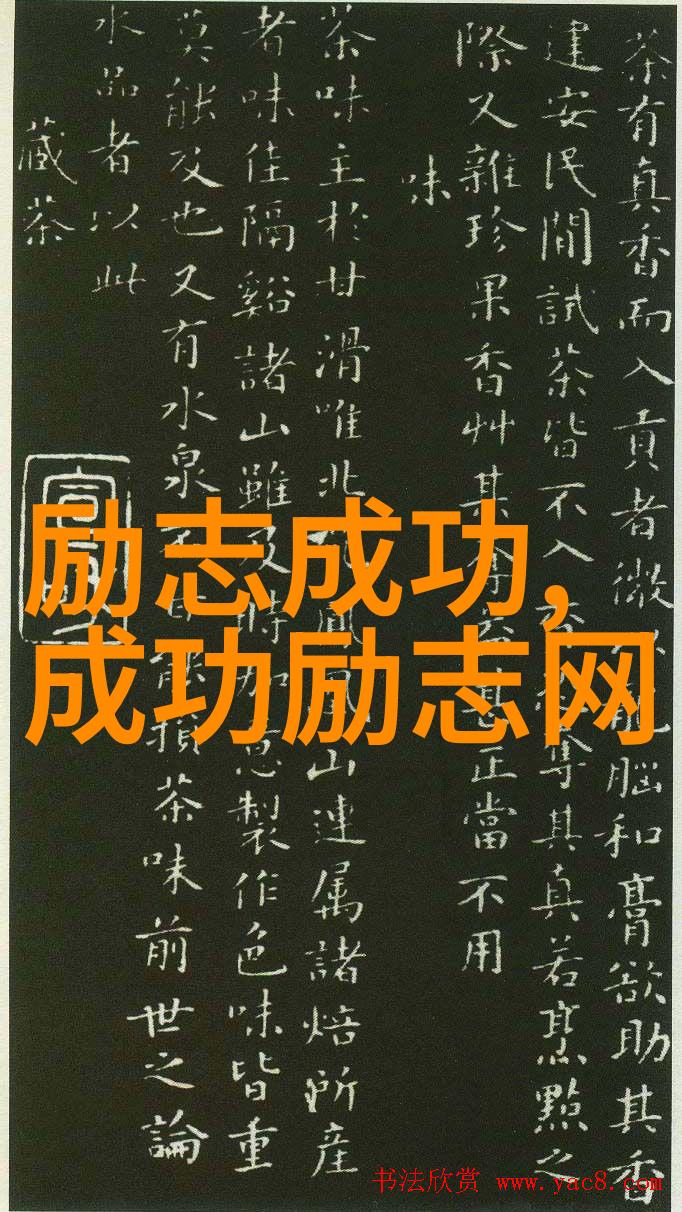 茶有真香而入貢者微以龍腦和膏欲助其香
建安民間試茶皆不入香恐奪其真若烹點之
際又雜珍果香艸其奪益甚正當不用
味
茶味主於甘滑唯北苑鳳凰山連属諸焙所産
者味佳隔谿諸山雖及時加意製作色味皆重
莫能及也又有水泉不甘能損茶味前世之論
水品者以此
藏茶
励志成功,
成功励志网
书法欣赏 www.yac8.com